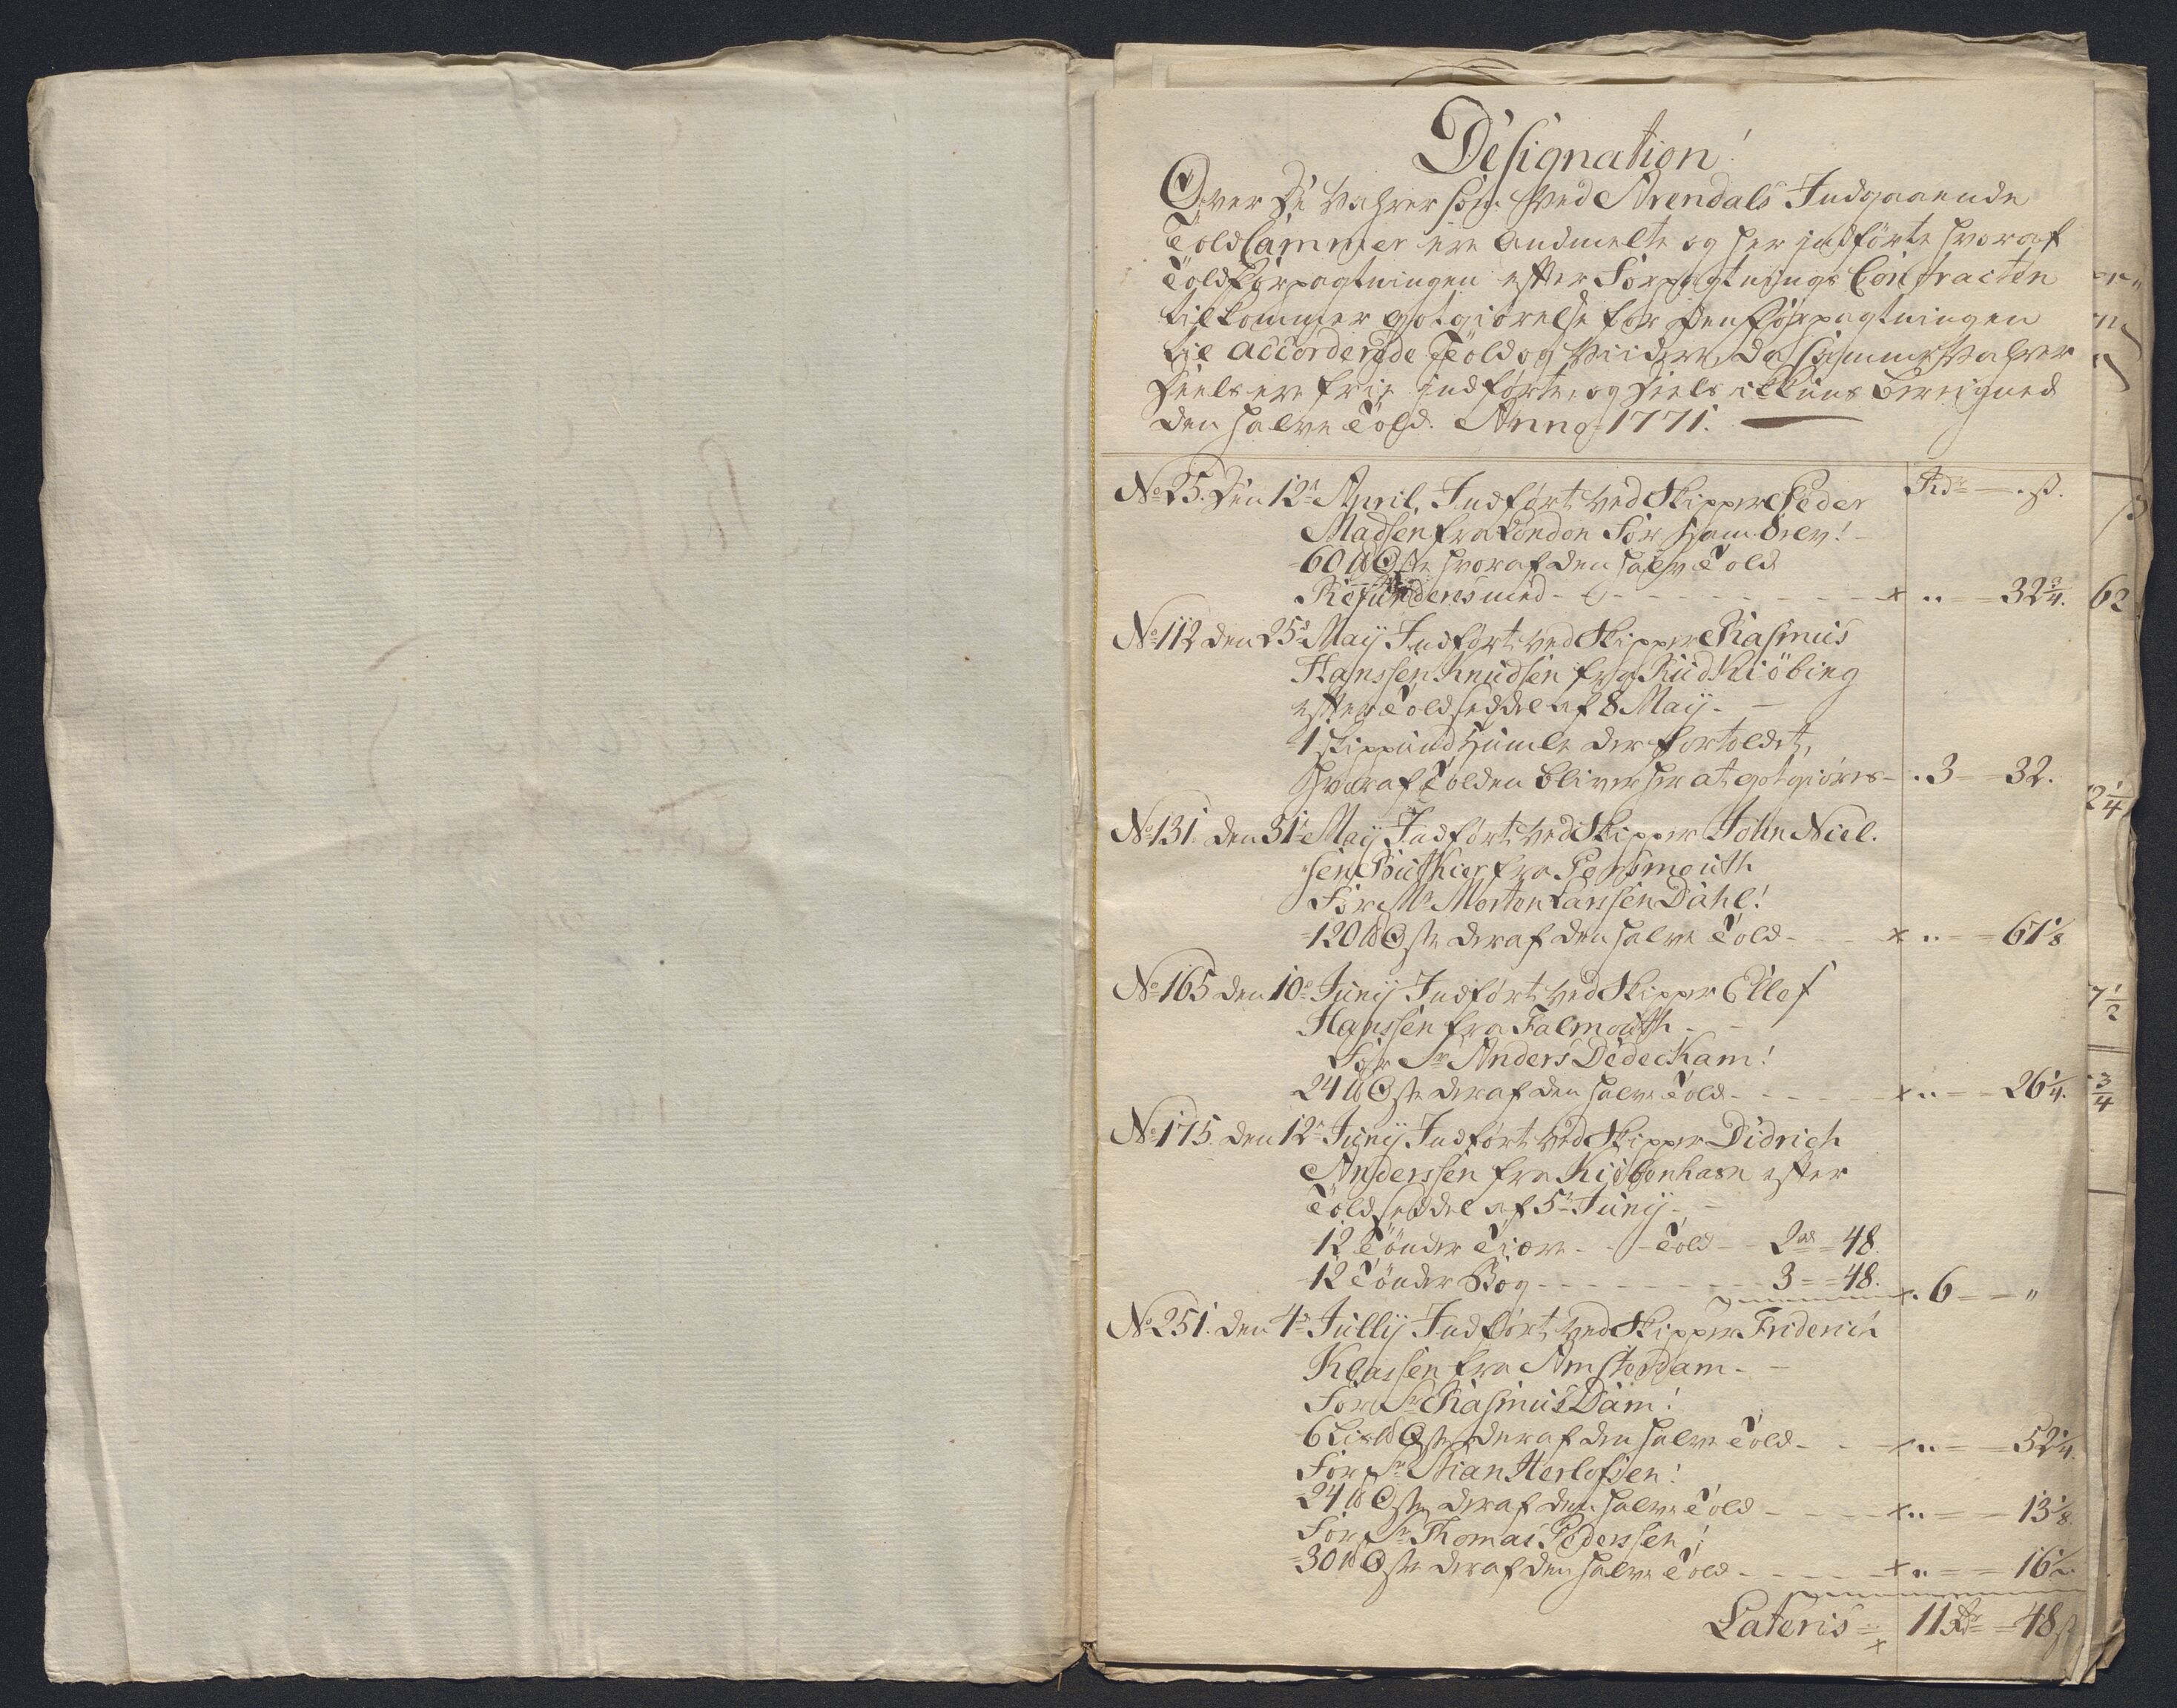 Designation!
Over De Vahrer som Ved Arendals Indgaaende
Told Cammer ere Andmelte og her indförte hvoraf
Toldforpagtningen efter Forpagtnings Contracten
tilkommer Gotgiörelse for den forpagtningen
til accorderede Told og Viidere, da samme Vahrer
deels ere frie indförte, og deels ikkuns beregned
den halve Told. Anno 1771.
Rdr — ß.
No 25. Den 12te April, Indfört ved Skipper Peder
Madsen fra London For ham Selv!
60 ℔ Oste hvoraf den halve Told
Refunderes med - - - x „ = 32 3/4.
No 112 den 25de Maij Indfört ved Skipper Rasmus
Hanssen Knudsen fra Rudkiöbing
efter Toldseddel af 8 Maij.
1 Skippund Humle der fortoldet,
hvoraf Tolden bliver her at gotgiöres - „ 3 = 32.
No 131. den 31te Maij Indfört ved Skipper John Niel-
sen fra Portsmouth
For Mr Morten Larssen Dahl!
120 ℔ Oste deraf den halve Told - - x „ = 67 1/8
No 165 den 10de Junij Indfört ved Skipper Ellef
Hanssen fra Falmouth -
For Sr Anders Dedeckam!
24 ℔ Oste deraf den halve Told - - - x „ = 26 1/4.
No 175. den 12te Junij Indfört ved Skipper Didrich
Anderssen fra Kiöbenhavn efter
Toldseddel af 5te Junij -
12 Tönder Tiære - - Told - 2 rd = 48.
12 Tönder Bög - - - 3 = 48. x. 6 = „
No 251. den 4de Jullij Indfört ved Skipper Friderich
Klassen fra Amsterdam -
For Sr Rasmus Dam!
6 Lis℔ Oste deraf den halve Told - - x „ = 52 1/4.
For Sr Stian Herlofsen!
24 ℔ Oste deraf den halve Told - - - x „ = 13 1/8
For Sr Thomas Pederssen!
30 ℔ Oste deraf den halve Told - - - x „ = 16 1/2.
Lateris = 11 Rdr = 48 ß
62
2 1/4
7 1/2
3/4